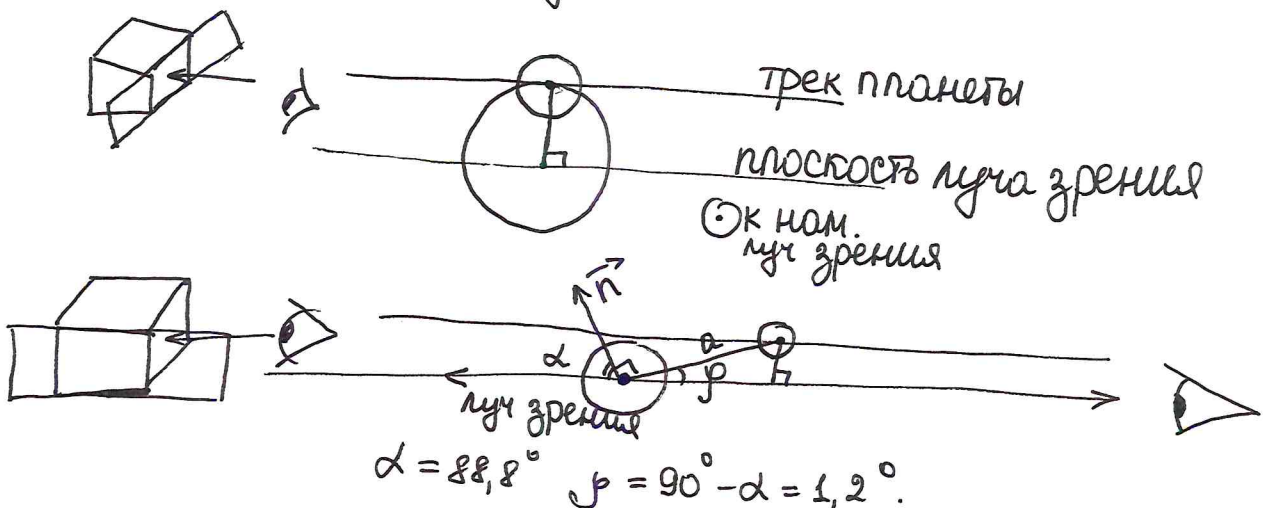 трек планеты
плоскость луча зрения
⊙ к нам.
луч зрения
n
α
a
ρ
луч зрения
α = 88,8° ρ = 90° - α = 1,2°.